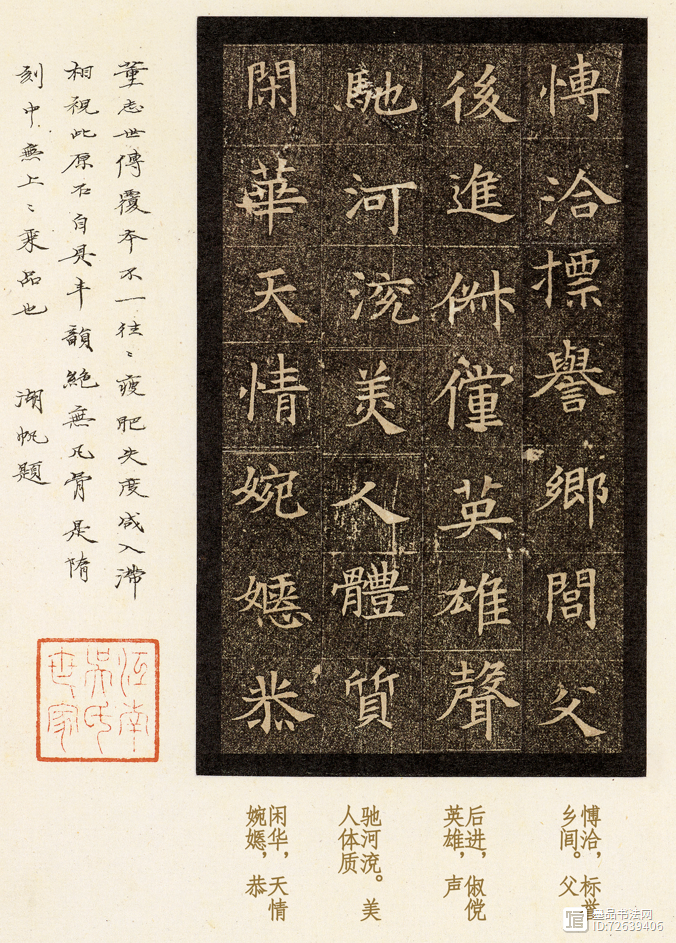 愽洽摽譽鄉閭父
後進俶儻英雄聲
馳河渷美人體質
閑華天情婉嫕恭
董志世傳覆本不一往〻瘦肥失度咸入滯
相視此原石自具丰韻絕無凡骨是隋
刻中無上〻乘品也 湖帆題
江南
吳氏
世家
愽洽，标誉
乡闾。父
后进，俶傥
英雄，声
驰河渷。美
人体质
闲华，天情
婉嫕，恭
墨品书法网
ID:72639406